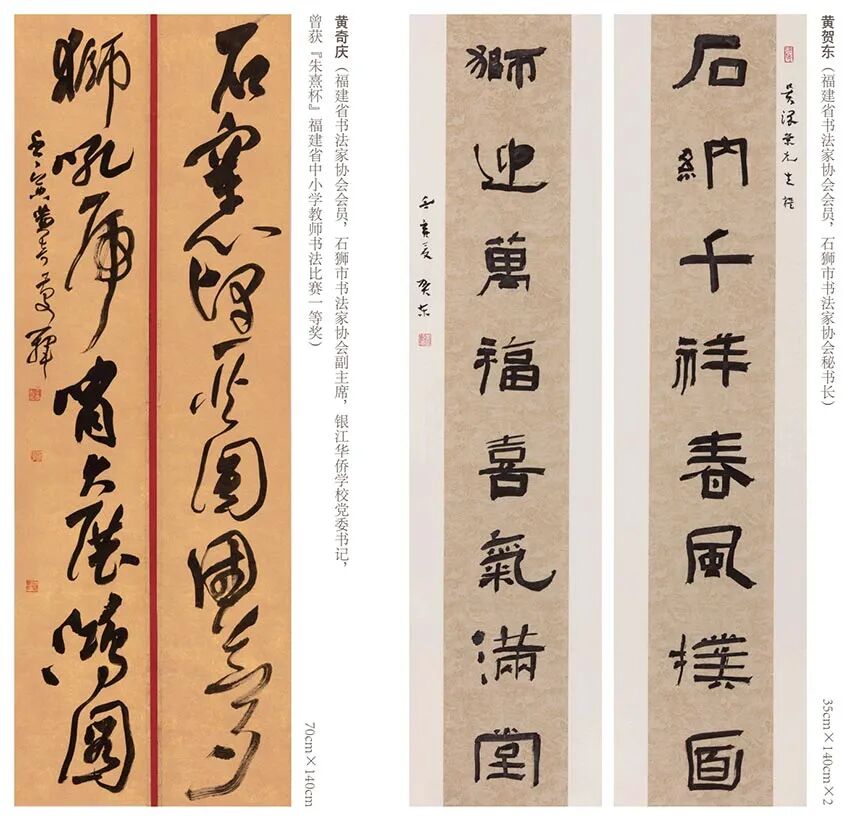 黄贺东（福建省书法家协会会员，石狮市书法家协会秘书长）
35cm×140cm×2
先生
石納千祥春風撲面
獅迎萬福喜氣滿堂
壬寅夏 贺东
黄奇庆（福建省书法家协会会员，石狮市书法家协会副主席，银江华侨学校党委书记，
曾获『朱熹杯』福建省中小学教师书法比赛一等奖）
70cm×140cm
石心共圓國夢
獅吼虎嘯大展鴻圖
壬寅黄奇慶